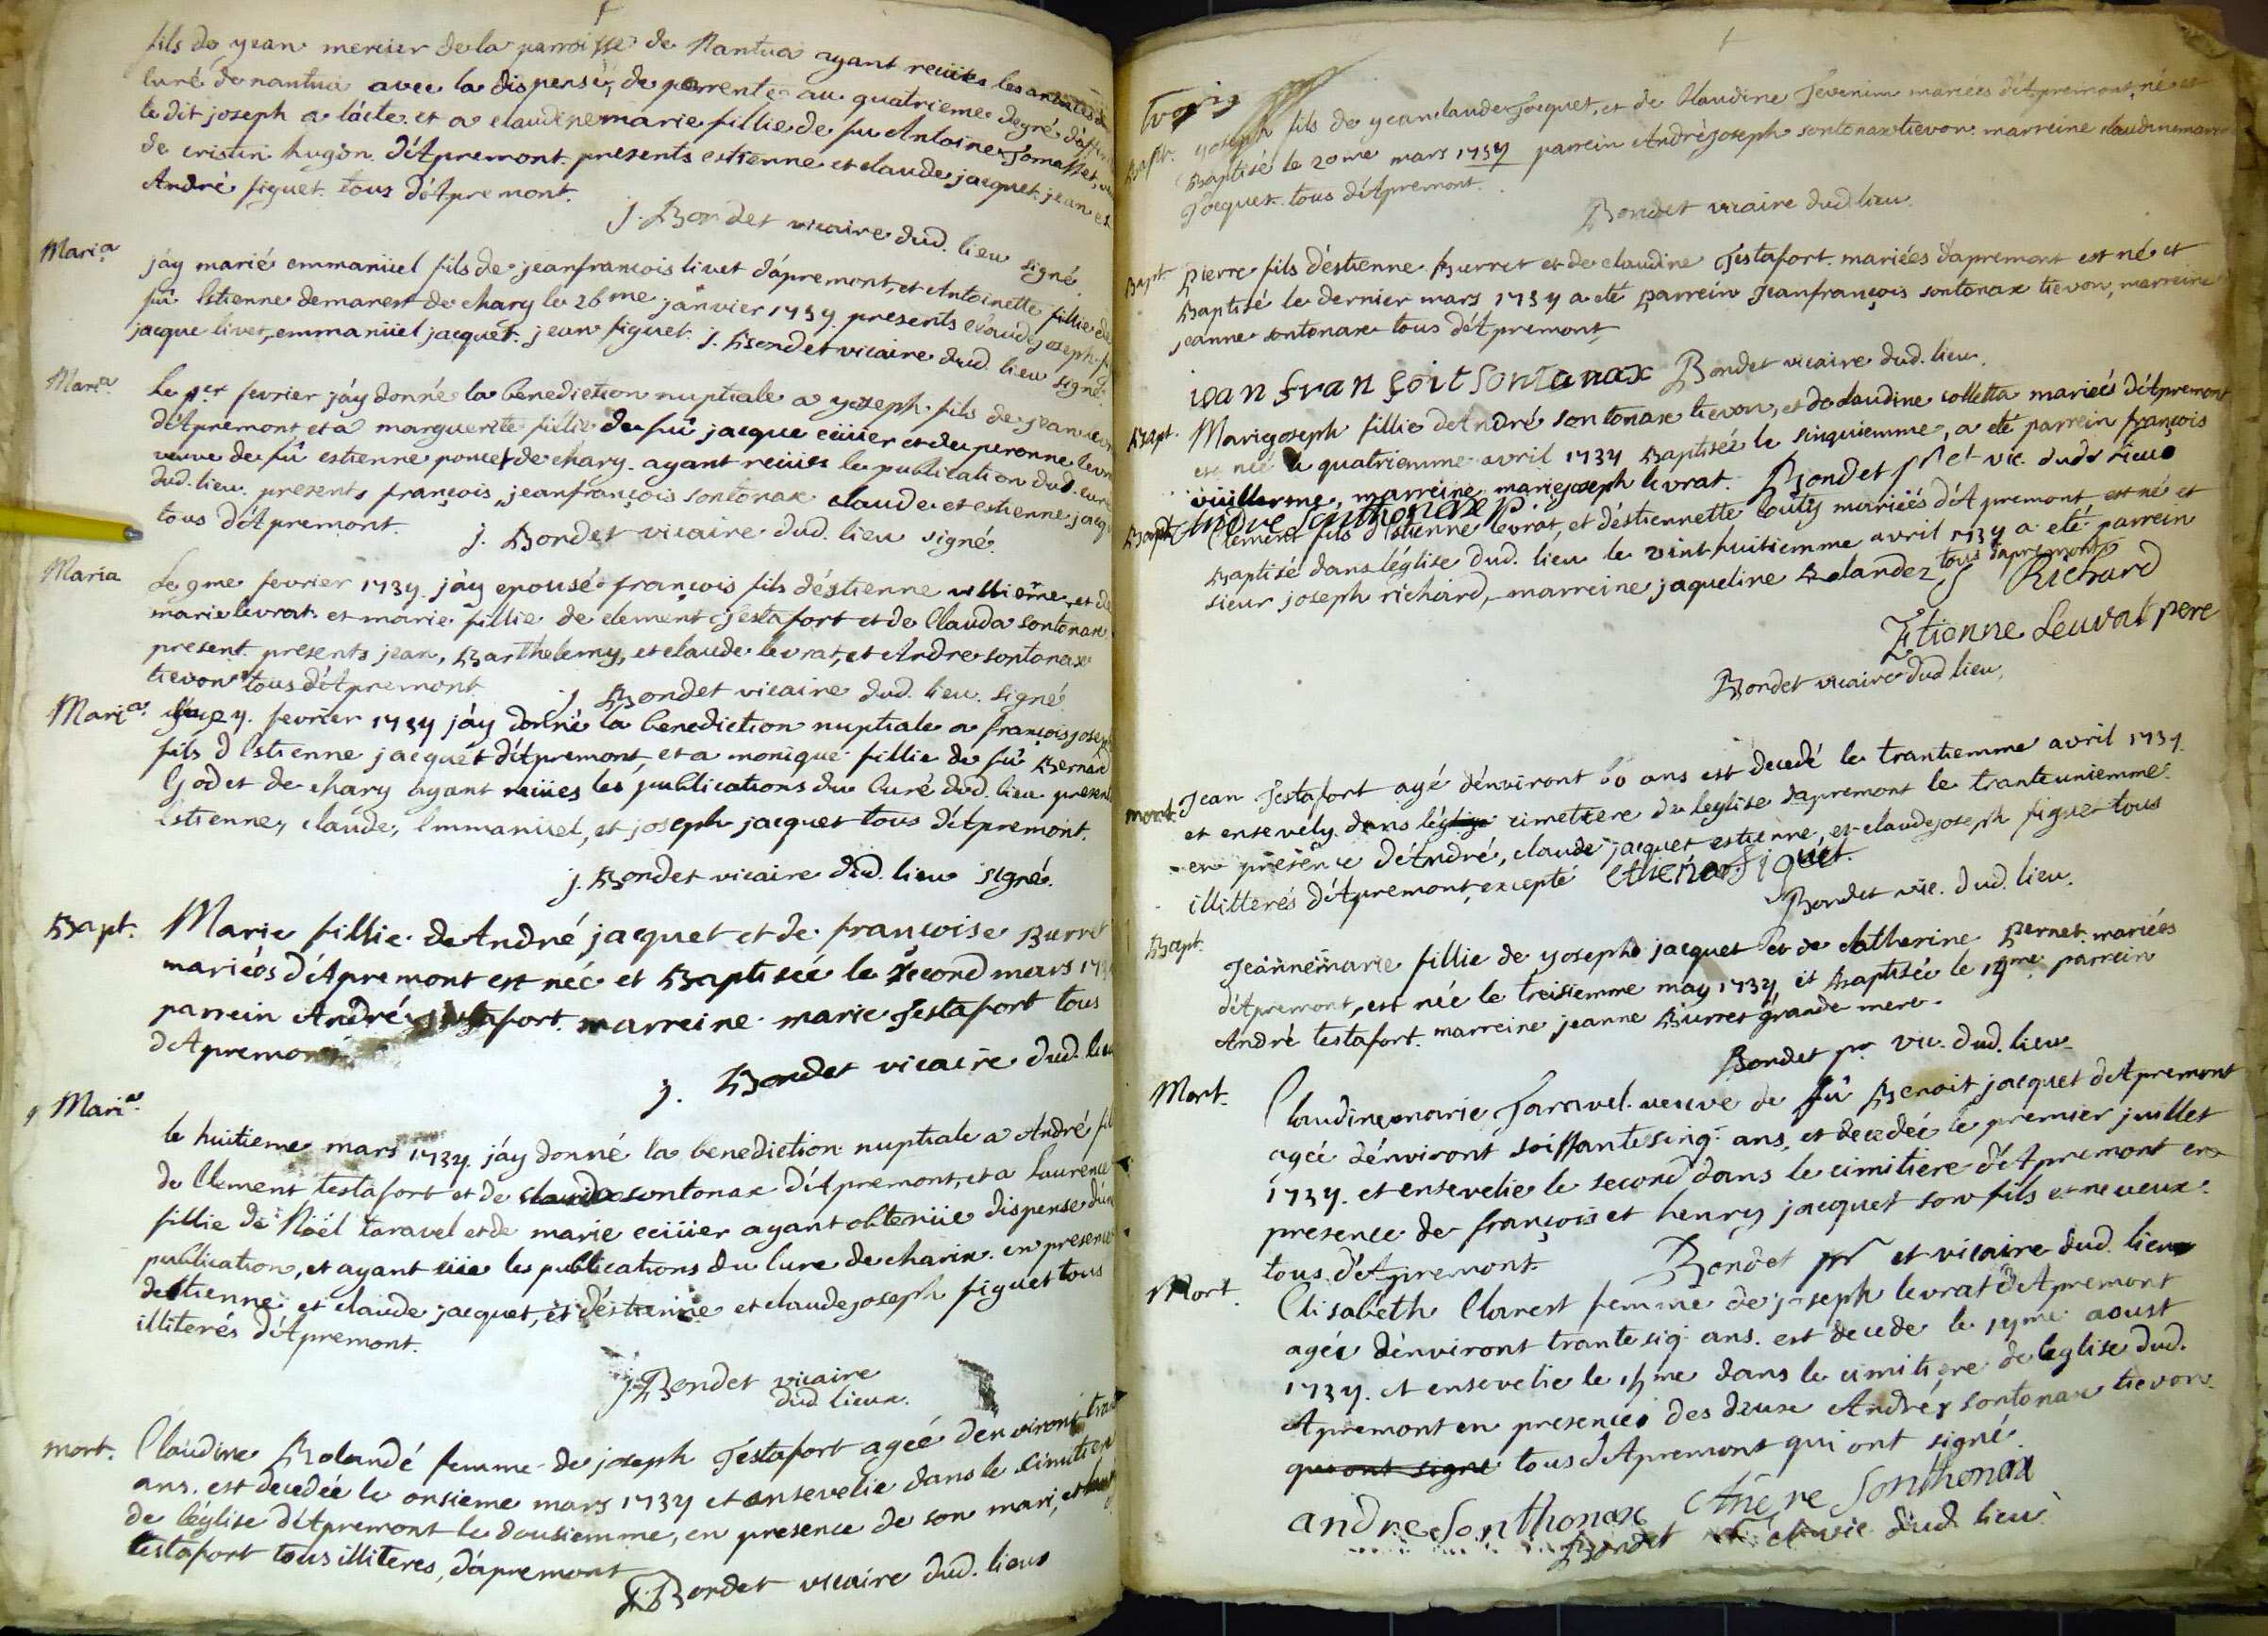 fils de yean mercier de la parroisse de Nantua ayant reciües les
curé de nantua avec la dispense, de parrente au quatrieme degré
le dit joseph a lacte et a claudinemarie fillie de fu Antoine Tomasset,
de cristin hugon d'Apremont. presents estienne et claude jacquet. jean et
André figuet. tous d'Apremont.
J. Bondet vicaire dud. lieu signé.
Maria
jáy marié emmanüel fils de jeanfrancois livet d'apremont, et Antoinette fillie de
fû Estienne demarest de chary le 26me janvier 1737. presents claudejoseph
jacque livet, emmanüel jacquet. jean figuet. J. Bondet vicaire dud. lieu signé.
Maria
Le 1er fevrier jáy donné la benediction nuptiale a yoseph fils de jean
d'Apremont et a marguerite fillie de fû jacque cüiier et de peronne levr
veuve de fû estienne poncet de chary. ayant reciües le publication dud. curé
dud. lieu. presents françois, jeanfrançois sontonax claude et estienne jacq
tous d'Apremont.
J. Bondet vicaire dud. lieu signé.
Maria
Le 9me fevrier 1737. jáy epousé françois fils d'éstienne et de
marie levrat. et marie fillie de clement Testafort et de Clauda sontonax
present. presents jean, Barthelemy, et claude levrat, et Andre sontonax
tievon tous d'Apremont.
J. Bondet vicaire dud. lieu. signé
Maria
fevrier 1737 jáy donné la benediction nuptiale a françoisjoseph
fils d'Estienne jacquet d'Apremont, et a monique fillie de fû Bernard
Godet de chary ayant reciües les publications du Curé dud. lieu present
Estienne, claude, Emmanüel, et joseph jacquet tous d'Apremont.
j. Bondet vicaire dud. lieu signé.
Bapt.
Marie fillie de André jacquet et de françoise Burret
mariées d'Apremont est née et Baptisée le second mars 173
parrein André testafort. marreine marie Testafort tous
d'Apremont
J. Bondet vicaire dud. lieu
Maria
le huitieme mars 1737. jáy donné la benediction nuptiale a André fil
de Clement testafort et de clauda sontonax d'Apremont, et a Laurence
fillie de Nöel taravel et de marie cciüier ayant obtenüe dispense d'une
publication, et ayant üe les publications du Cure de charix. en presence
destienne et claude jacquet, et d'éstienne et claudejoseph figuet tous
illiterés d'Apremont.
J. Bondet vicaire
dud. lieux.
mort.
Claudine Bolandé femme de joseph Testafort ageé d'environt
ans. est decedée le onsieme mars 1737 et ensevelie dans le cimitier
de l'église d'Apremont le dousiemme, en presence de son mari, et
testafort tous illiteres, d'apremont
J. Bondet vicaire dud. lieux
Bapt.
yoseph fils de yeanclaude Jocquet, et de Claudine Tevenin mariées d'Apremont, né et
Baptisé le 20me mars 1737 parrein Andréjoseph sontonax tievon marreine claudinemarie
Jocquet. tous d'Apremont.
Bondet vicaire dud. lieu.
Bapt.
Pierre fils d'éstienne Burret et de claudine Testafort. mariées dapremont est né et
Baptisé le dernier mars 1737 a eté parrein Jeanfrançois sontonax tievon, marreine
jeanne sontonax tous d'Apremont,
ioan fran çoit Sontonax Bondet vicaire dud. lieu.
Bapt.
Mariejoseph fillie de André sontonax tievon, et de claudine colletta mariées d'Apremont
est née le quatriemme avril 1737 Baptisée le sinquiemme, a eté parrein françois
vüillerme, marreine mariejoseph levrat. Bondet pr et vic. dudt lieu
Andre Sonthonax p.
Bapt.
Clement fils d'Estienne levrat, et d'éstiennette Coüty mariées d'Apremont est né et
Baptisé dans léglise dud. lieu le vint huitiemme avril 1737 a eté parrein
sieur joseph richard, marreine jaqueline Bolandez tous dapremont
J Richard
Etienne Leuvat pere
Bondet vicaire dud lieu,
mort.
Jean Testafort agé d'environt 60 ans est decedé le trantiemme avril 1737.
et ensevely dans léglise cimetiere de leglise dapremont le tranteuniemme
en presence d'André, claude jacquet estienne, et claudejoseph figuet tous
illitterés d'Apremont, excepté Etienne Figuet.
Bondet vic. dud. lieu.
Bapt.
Jeannemarie fillie de yoseph jacquet et de Catherine Pernet. mariées
d'Apremont, est née le treisiemme may 1737 et Baptisée le parrein
André testafort. marreine jeanne Burret grande mere.
Bondet pr. vic. dud. lieu.
Mort.
Claudinemarie Taravel. veuve de fû Benoit jacquet d'Apremont
agée d'environt soissantesinq ans, et decedée le premier juillet
1737. et ensevelie le second dans le cimitiere d'Apremont en
presence de françois et henry jacquet son fils et neveux.
tous d'Apremont.
Bondet pr et vicaire dud. lieu
Mort.
Elisabeth Clarest femme de joseph levrat d'Apremont
agée d'environt trante siq ans. est decede le aoust
1737. et ensevelie le dans le cimitiere de leglise dud.
Apremont en presence des deux André, sontonax tievon
qui ont signe tous d'Apremont qui ont signé.
andre Sonthonax Andre Sonthonax
Bondet et vic dud. lieu